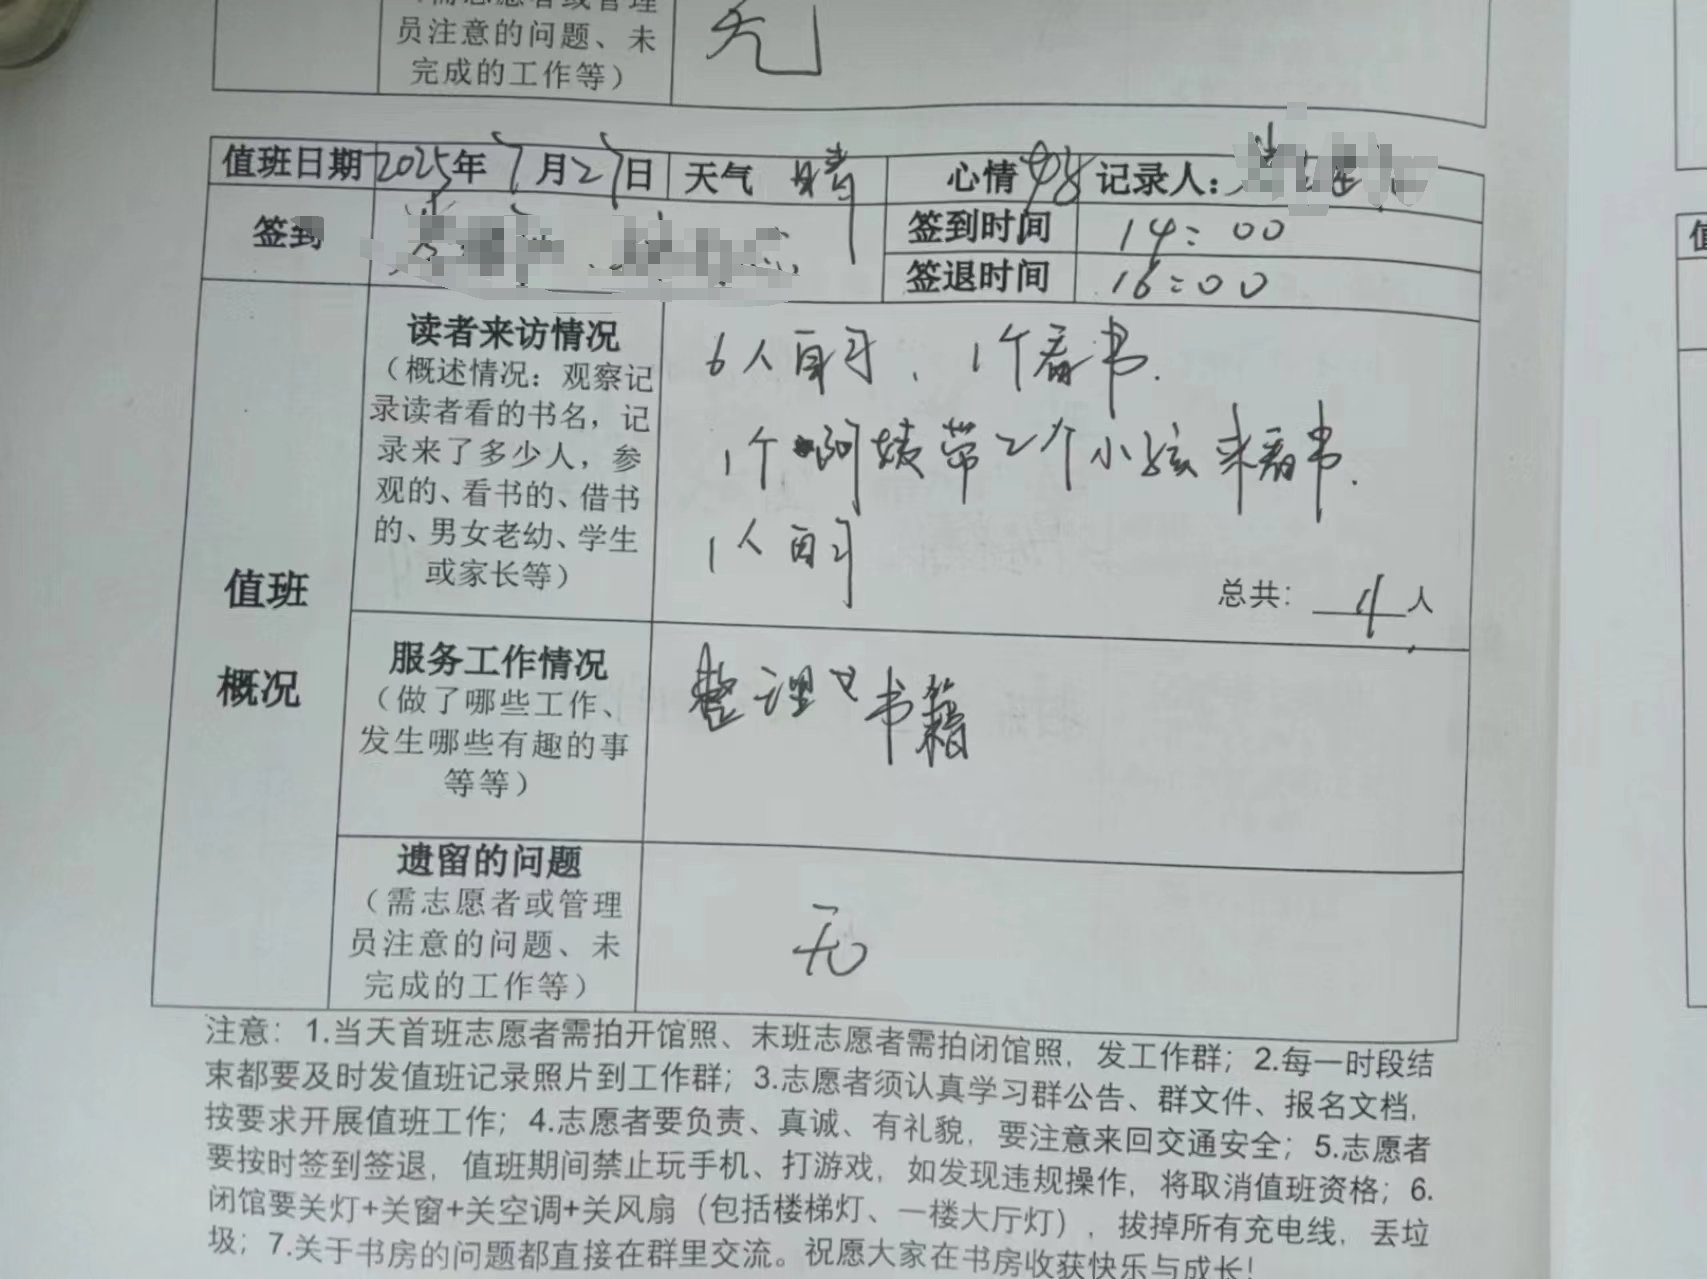 员注意的问题、未
完成的工作等）
无
值班日期 2025年7月27日 天气 晴 心情 好 记录人：
签到
签到时间 14：00
签退时间 16：00
值班
概况
读者来访情况
（概述情况：观察记
录读者看的书名，记
录来了多少人，参
观的、看书的、借书
的、男女老幼、学生
或家长等）
6人自习，1个看书.
1个阿姨带2个小孩来看书.
1人自习
总共：人
服务工作情况
（做了哪些工作、
发生哪些有趣的事
等等）
整理了书籍
遗留的问题
（需志愿者或管理
员注意的问题、未
完成的工作等）
无
注意：1.当天首班志愿者需拍开馆照、末班志愿者需拍闭馆照，发工作群；2.每一时段结
束都要及时发值班记录照片到工作群；3.志愿者须认真学习群公告、群文件、报名文档，
按要求开展值班工作；4.志愿者要负责、真诚、有礼貌，要注意来回交通安全；5.志愿者
要按时签到签退，值班期间禁止玩手机、打游戏，如发现违规操作，将取消值班资格；6.
闭馆要关灯+关窗+关空调+关风扇（包括楼梯灯、一楼大厅灯），拔掉所有充电线，丢垃
圾；7.关于书房的问题都直接在群里交流。祝愿大家在书房收获快乐与成长！